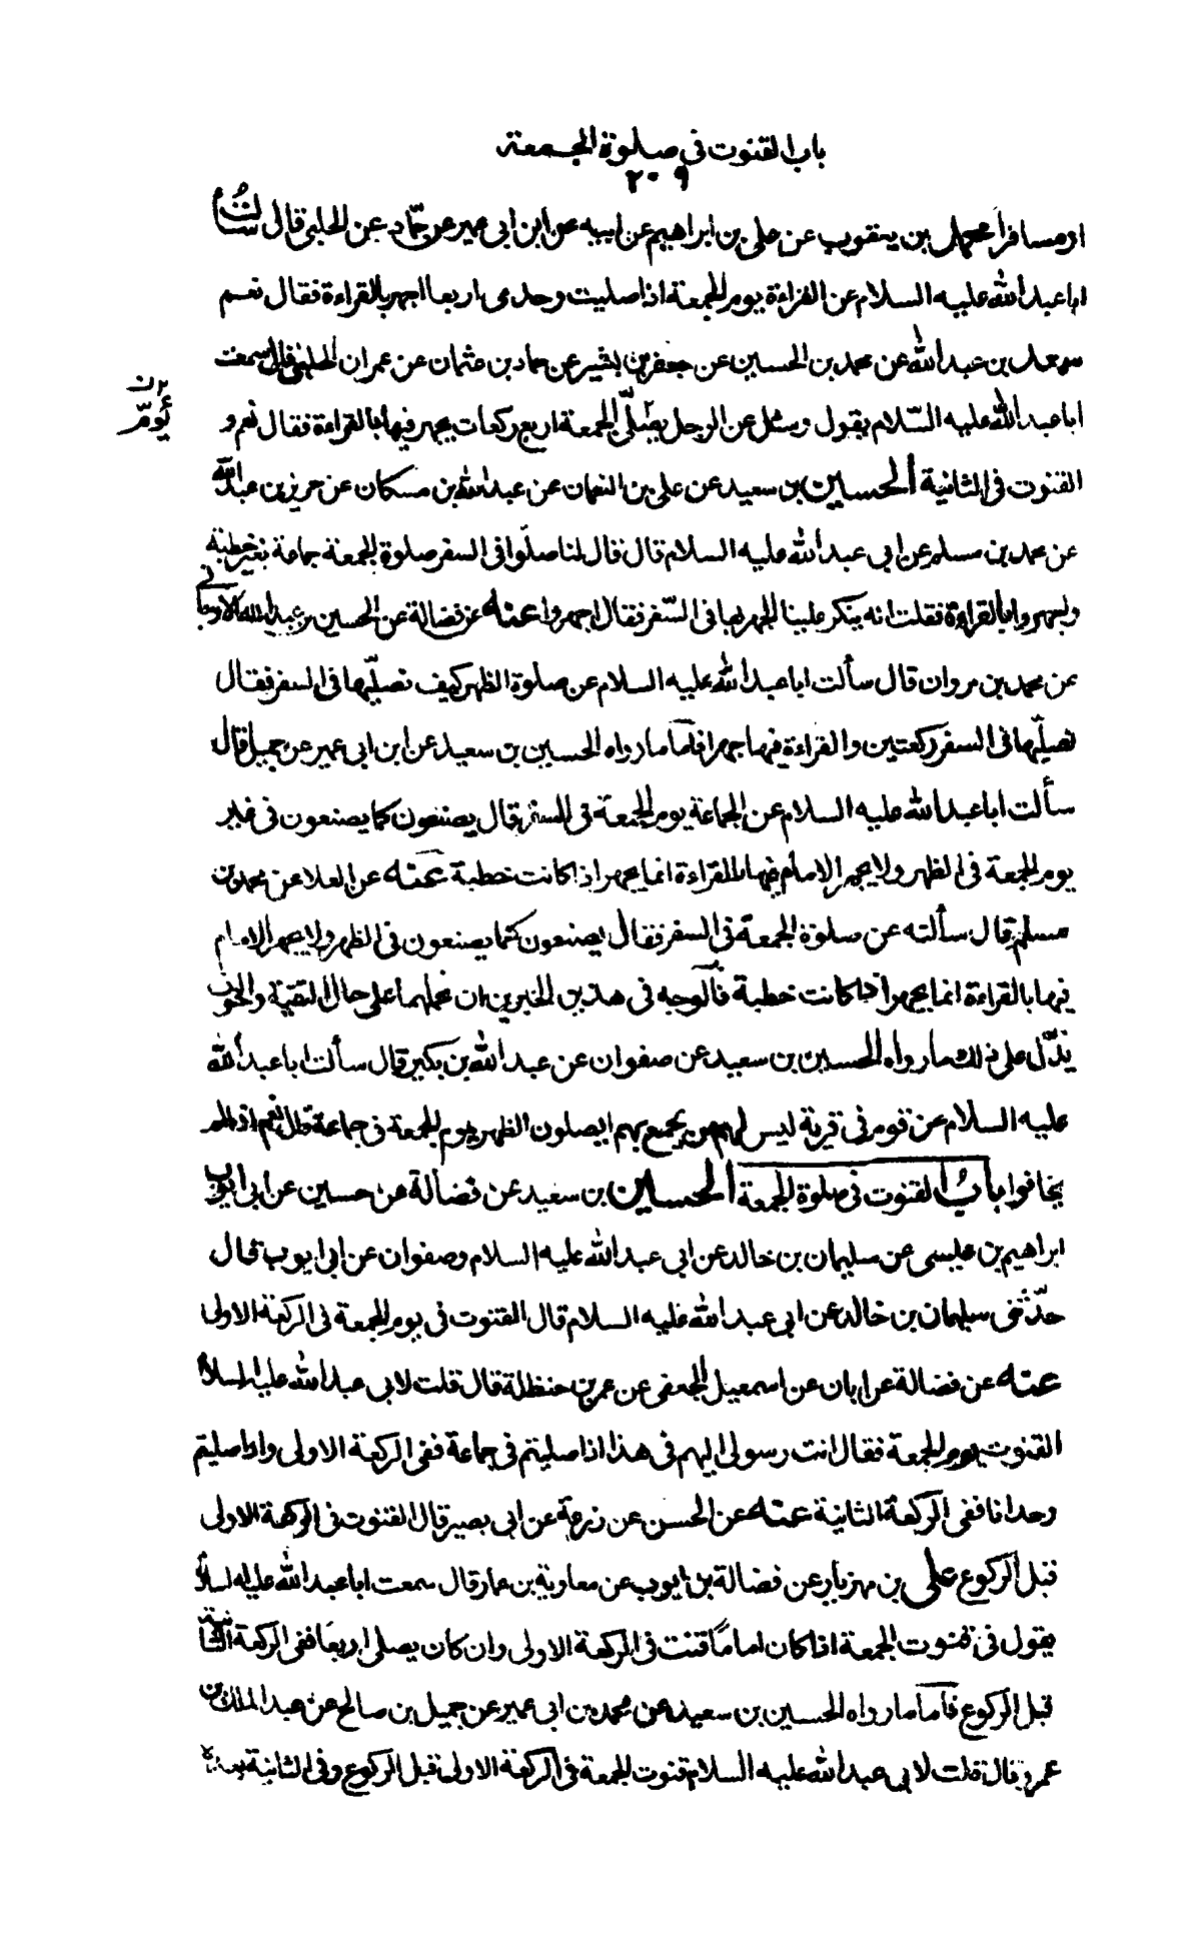 باب القنوت في صلوة الجمعة
٢٠٩
او مسافرا محمد بن يعقوب عن علي بن ابراهيم عن ابيه عن ابن ابي عمير عن حمّاد عن الحلبي قال سالت
ابا عبد الله عليه السلام عن القراءة يوم الجمعة اذا صليت وحدي اربعا اجهر بالقراءة فقال نعم
سعد بن عبد الله عن محمد بن الحسين عن جعفر بن بشير عن حماد بن عثمان عن عمران الحلبي قال سمعت
ابا عبد الله عليه السّلام يقول وسئل عن الرجل يصلّي الجمعة اربع ركعات يجهر فيها بالقراءة فقال نعم و
٢ ن
يؤمّ
القنوت في الثانية الحسين بن سعيد عن علي بن النعمان عن عبد الله بن مسكان عن حريز بن عبد الله
عن محمد بن مسلم عن ابي عبد الله عليه السلام قال قال لنا صلّوا في السفر صلوة الجمعة جماعة بغير خطبة
واجهروا بالقراءة فقلت انه ينكر علينا الجهر بها في السّفر فقال اجهروا عنه عن فضالة عن الحسين بن عبد الله الارجاني
عن محمد بن مروان قال سألت ابا عبد الله عليه السلام عن صلوة الظهر كيف نصلّيها في السفر فقال
تصلّيها في السفر ركعتين والقراءة فيها جهرا فامّا ما رواه الحسين بن سعيد عن ابن ابي عمير عن جميل قال
سألت ابا عبد الله عليه السلام عن الجماعة يوم الجمعة في السفر قال يصنعون كما يصنعون في غير
يوم الجمعة في الظهر ولا يجهر الامام فيها بالقراءة انما يجهر اذا كانت خطبة عنه عن العلا عن محمد بن
مسلم قال سألته عن صلوة الجمعة في السفر فقال يصنعون كما يصنعون في الظهر ولا يجهر الامام
فيها بالقراءة انما يجهر اذا كانت خطبة فالوجه في هذين الخبرين ان نحملهما على حال التقيّة والخوف
يدّل على ذلك ما رواه الحسين بن سعيد عن صفوان عن عبد الله بن بكير قال سألت ابا عبد الله
عليه السلام عن قوم في قرية ليس لهم من يجمع بهم ايصلون الظهر يوم الجمعة في جماعة قال نعم اذا لم
يخافوا باب القنوت في صلوة الجمعة الحسين بن سعيد عن فضالة عن حسين عن ابي ايوب
ابراهيم بن عيسى عن سليمان بن خالد عن ابي عبد الله عليه السلام وصفوان عن ابي ايوب قال
حدّثني سليمان بن خالد عن ابي عبد الله عليه السلام قال القنوت في يوم الجمعة في الركعة الاولى
عنه عن فضالة عن ابان عن اسمعيل الجعفي عن عمر بن حنظلة قال قلت لابي عبد الله عليه السلام
القنوت يوم الجمعة فقال انت رسولي اليهم في هذا اذا صليتم في جماعة ففي الركعة الاولى واذا صليتم
وحدانا ففي الركعة الثانية عنه عن الحسن عن زرعة عن ابي بصير قال القنوت في الركعة الاولى
قبل الركوع علي بن مهزيار عن فضالة بن ايوب عن معاوية بن عمار قال سمعت ابا عبد الله عليه السلام
يقول في قنوت الجمعة اذا كان اماماً قنت في الركعة الاولى وان كان يصلي اربعاً ففي الركعة الثانية
قبل الركوع فاما ما رواه الحسين بن سعيد عن محمد بن ابي عمير عن جميل بن صالح عن عبد الملك بن
عمرو قال قلت لابي عبد الله عليه السلام قنوت الجمعة في الركعة الاولى قبل الركوع وفي الثانية بعد